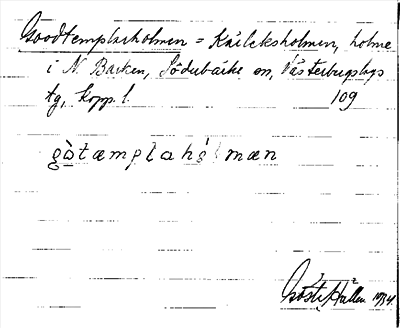 Goodtemplarholmen = Kálcksholmen, holme
i N. Barken, Söderbärke sn, Västerbergslags
tg, Kopp. l. 109
gòtæmplahólmæn
Gösta Hallén 1934